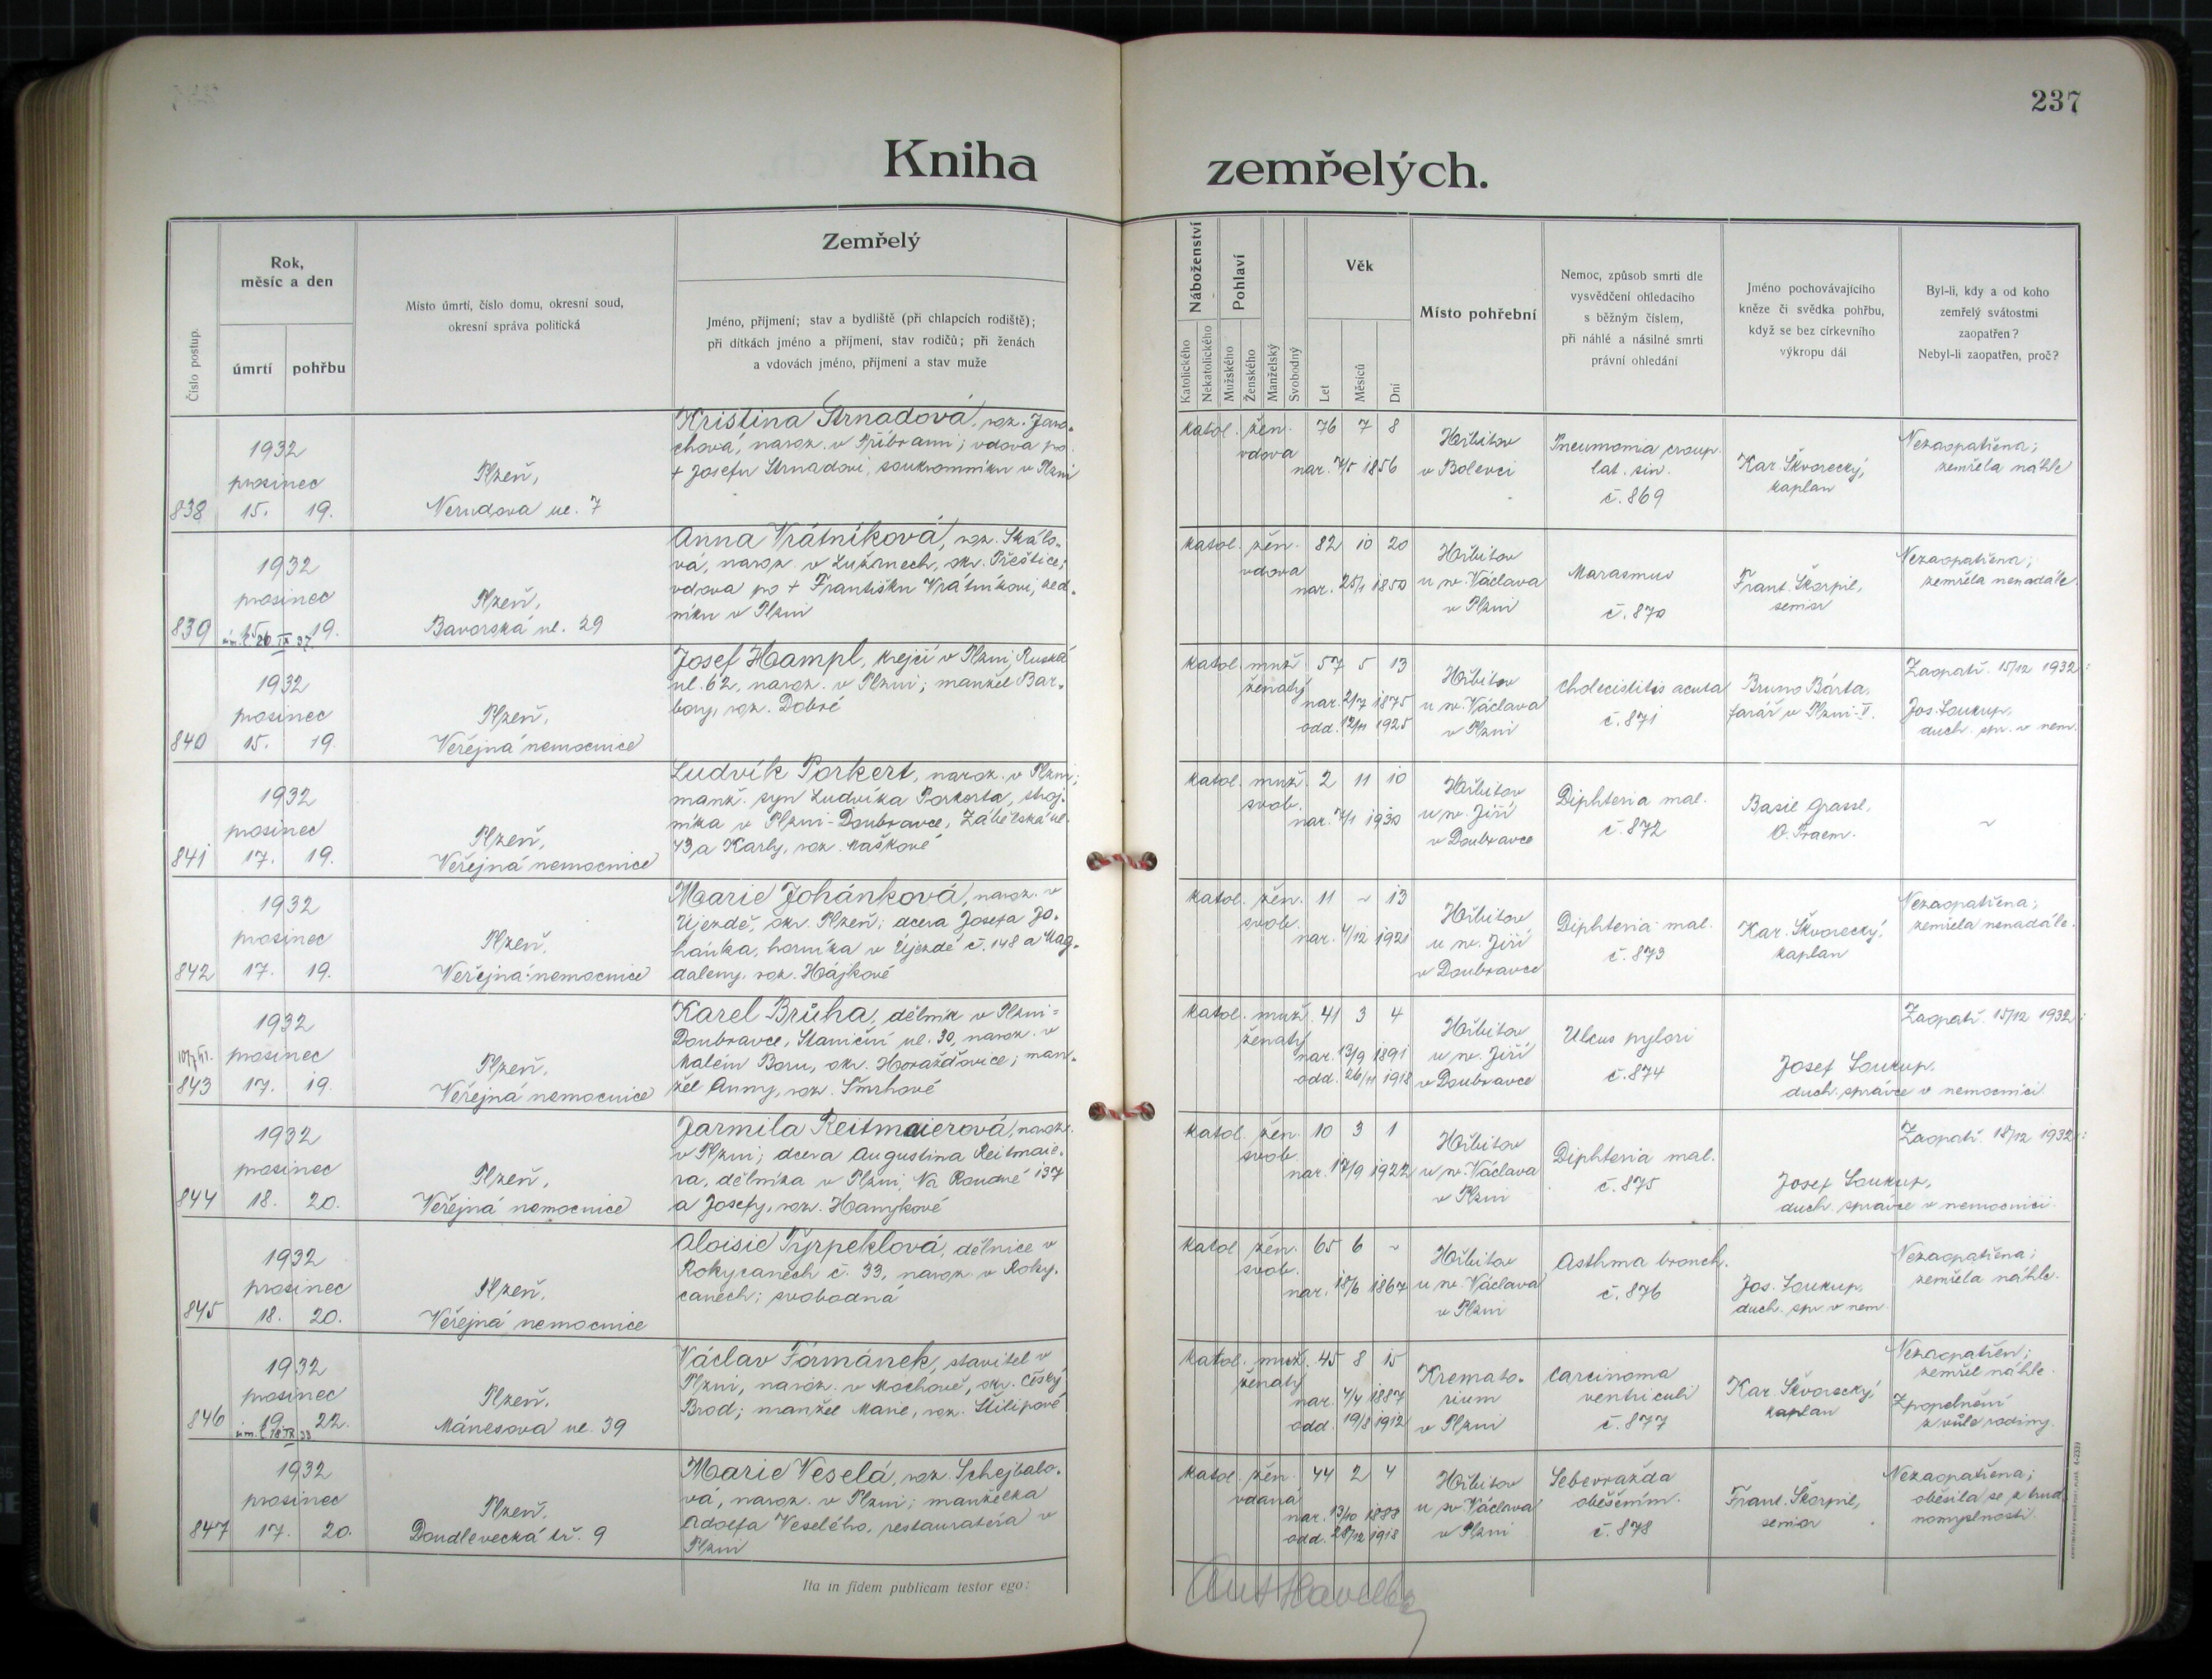 237
Kniha zemřelých.
Číslo postup.
Rok,
měsíc a den
úmrtí
pohřbu
Místo úmrtí, číslo domu, okresní soud,
okresní správa politická
Zemřelý
Jméno, příjmení; stav a bydliště (při chlapcích rodiště);
při dítkách jméno a příjmení, stav rodičů; při ženách
a vdovách jméno, příjmení a stav muže
Náboženství
Katolického
Nekatolického
Pohlaví
Mužského
Ženského
Manželský
Svobodný
Věk
Let
Měsíců
Dní
Místo pohřební
Nemoc, způsob smrti dle
vysvědčení ohledacího
s běžným číslem,
při náhlé a násilné smrti
právní ohledání
Jméno pochovávajícího
kněze či svědka pohřbu,
když se bez církevního
výkropu dál
Byl-li, kdy a od koho
zemřelý svátostmi
zaopatřen?
Nebyl-li zaopatřen, proč?
838
1932
prosinec
15. 19.
Plzeň,
Nerudova ul. 7
Kristina Strnadová, roz.
chová, naroz. v Příbrami; vdova po
+ Josefu Strnadovi, soukromníku v Plzni
katol. žen. 76 7 8
vdova
nar. 7/5 1856
Hřbitov
v Bolevci
Pneumonia croup.
lat. sin.
č. 869
Kar. Škvorecký,
kaplan
Nezaopatřena;
zemřela náhle
839
1932
prosinec
15. 19.
Plzeň,
Bavorská ul. 29
Anna Vrátníková, roz. Skálo-
vá, naroz. v Lužanech, okr. Přeštice;
vdova po + Františku Vrátníkovi, zed-
níku v Plzni
katol. žen. 82 10 20
vdova
nar. 25/1 1850
Hřbitov
u sv. Václava
v Plzni
Marasmus
č. 870
Frant. Škorpil,
senior
Nezaopatřena;
zemřela nenadále.
840
1932
prosinec
15. 19.
Plzeň,
Veřejná nemocnice
Josef Hampl, krejčí v Plzni, Ruská
ul. 62, naroz. v Plzni; manžel Bar-
bory, roz. Dobré
katol. muž. 57 5 13
ženatý
nar. 2/7 1875
odd. 12/11 1925
Hřbitov
u sv. Václava
v Plzni
Cholecistitis acuta
č. 871
Bruno Bárta,
farář v Plzni-V.
Zaopatř. 15/12 1932:
Jos. Soukup,
duch. spr. v nem.
841
1932
prosinec
17. 19.
Plzeň,
Veřejná nemocnice
Ludvík Porkert, naroz. v Plzni;
manž. syn Ludvíka Porkerta, stroj-
níka v Plzni-Doubravce, Zábělská ul.
43, a Karly, roz. Maškové
katol. muž. 2 11 10
svob.
nar. 7/1 1930
Hřbitov
u sv. Jiří
v Doubravce
Diphteria mal.
č. 872
Basil Grassl,
O. Praem.
~
842
1932
prosinec
17. 19.
Plzeň,
Veřejná nemocnice
Marie Johánková, naroz. v
Újezdě, okr. Plzeň; dcera Josefa Jo-
hánka, horníka v Újezdě č. 148 a Mag-
daleny, roz. Hájkové
katol. žen. 11 ~ 13
svob.
nar. 4/12 1921
Hřbitov
u sv. Jiří
v Doubravce
Diphteria mal.
č. 873
Kar. Škvorecký,
kaplan
Nezaopatřena;
zemřela nenadále.
843
1932
prosinec
17. 19.
Plzeň,
Veřejná nemocnice
Karel Brůha, dělník v Plzni-
Doubravce, Staniční ul. 30, naroz. v
Malém Boru, okr. Horažďovice; man-
žel Anny, roz. Smrhové
katol. muž. 41 3 4
ženatý
nar. 13/9 1891
odd. 26/11 1918
Hřbitov
u sv. Jiří
v Doubravce
Ulcus pylori
č. 874
Zaopatř. 15/12 1932:
Josef Soukup,
duch. správce v nemocnici
844
1932
prosinec
18. 20.
Plzeň,
Veřejná nemocnice
Jarmila Reitmaierová, naroz.
v Plzni; dcera Augustina Reitmaie-
ra, dělníka v Plzni, Na Roudné 137
a Josefy, roz. Hanzkové
katol. žen. 10 3 1
svob.
nar. 17/9 1922
Hřbitov
u sv. Václava
v Plzni
Diphteria mal.
č. 875
Zaopatř. 18/12 1932:
Josef Soukup,
duch. správce v nemocnici
845
1932
prosinec
18. 20.
Plzeň,
Veřejná nemocnice
Aloisie Pyrpeklová, dělnice v
Rokycanech č. 33, naroz. v Roky-
canech; svobodná
katol. žen. 65 6 ~
svob.
nar. 18/6 1867
Hřbitov
u sv. Václava
v Plzni
Asthma bronch.
č. 876
Jos. Soukup,
duch. spr. v nem.
Nezaopatřena;
zemřela náhle.
846
1932
prosinec
19. 22.
Plzeň,
Mánesova ul. 39
Václav Formánek, stavitel v
Plzni, naroz. v Mochově, okr. Český
Brod; manžel Marie, roz. Štilipové
katol. muž. 45 8 15
ženatý
nar. 4/4 1887
odd. 19/8 1912
Kremato-
rium
v Plzni
Carcinoma
ventriculi
č. 877
Kar. Škvorecký,
kaplan
Nezaopatřen;
zemřel náhle.
Zpopelnění
z vůle rodiny.
847
1932
prosinec
17. 20.
Plzeň,
Doudlevecká tř. 9
Marie Veselá, roz. Schejbalo-
vá, naroz. v Plzni; manželka
Adolfa Veselého, restauratéra v
Plzni
katol. žen. 44 2 4
vdaná
nar. 13/10 1888
odd. 28/12 1918
Hřbitov
u sv. Václava
v Plzni
Sebevražda
oběšením.
č. 878
Frant. Škorpil,
senior
Nezaopatřena;
oběsila se
Ita in fidem publicam testor ego: